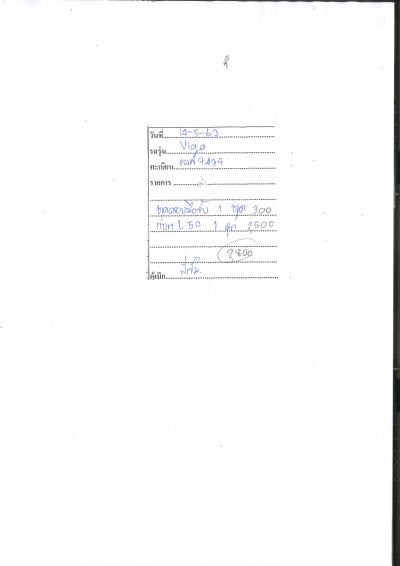 วันที่ 14-5-63
รถรุ่น Vigo
ทะเบียน
รายการ
1 ชุด 300
แบต L 50 1 ลูก 2500
2800
ผู้เบิก